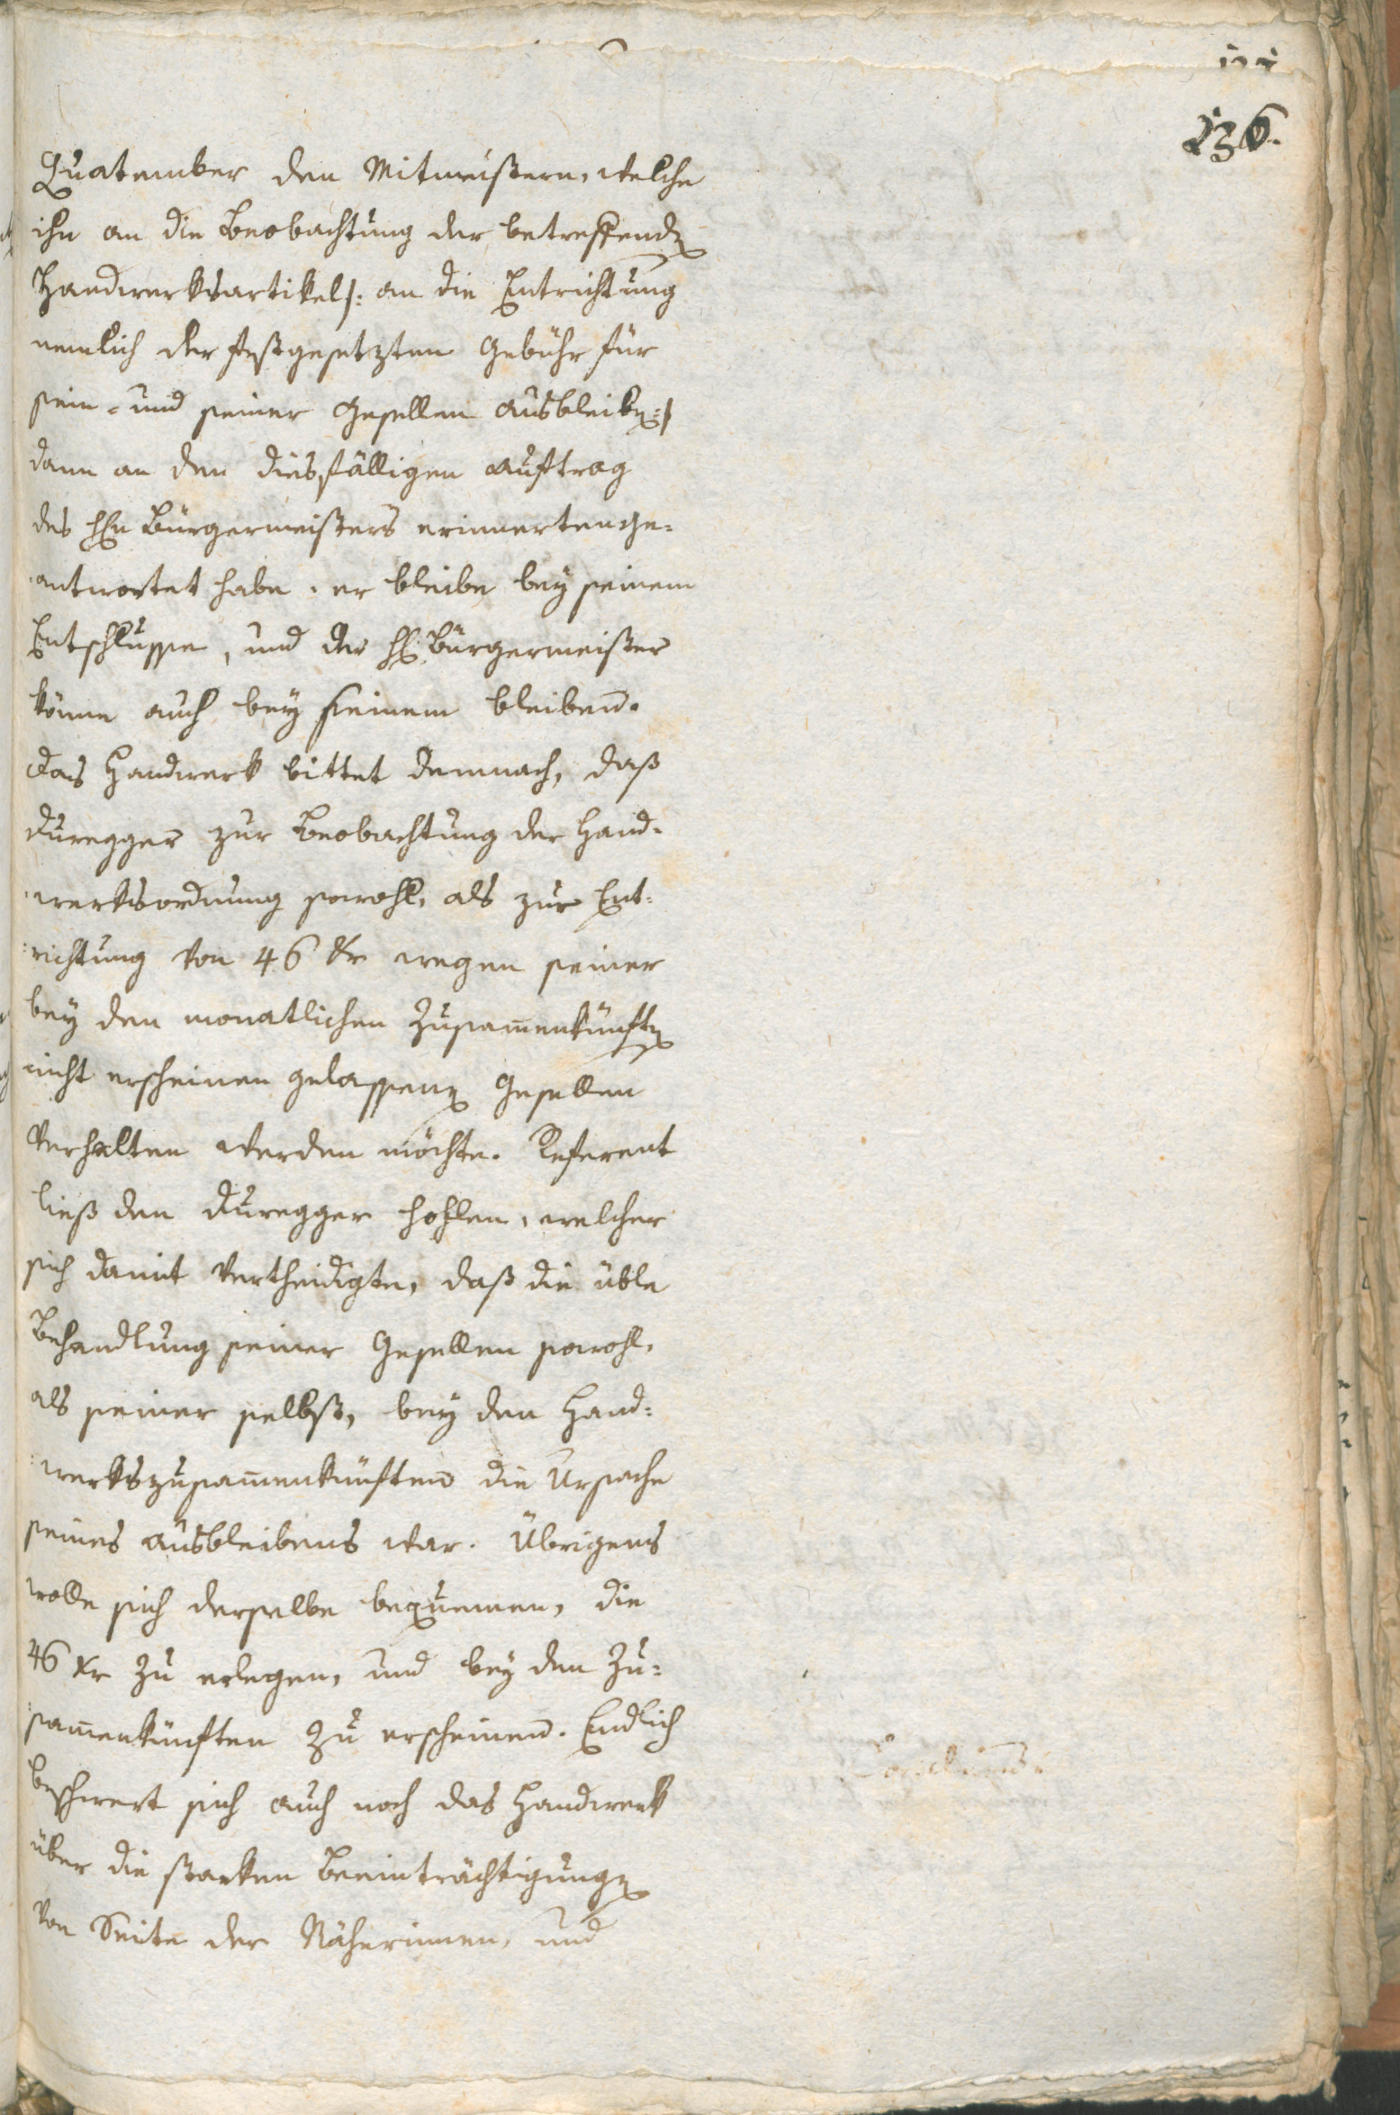 136.
Quatember den Mitmeistern, welche
ihn an die Beobachtung der betreffenden
Handwerksartikel /: an die Entrichtung
nemlich der festgesetzten Gebühr für
sein- und seiner Gesellen Ausbleiben :/
dann an den diesfälligen Auftrag
des Hrn Bürgermeisters erinnerten ge-
antwortet habe, er bleibe bey seinem
Entschlusse, und der Hr Bürgermeister
könne auch bey seinem bleiben.
Das Handwerk bittet demnach, daß
Duregger zur Beobachtung der Hand-
werksordnung sowohl, als zur Ent-
richtung von 46 Kr wegen seiner
bey den monatlichen Zusam̄enkünften
nicht erscheinen gelassenen Gesellen
verhalten werden möchte. Referent
ließ den Duregger hohlen, welcher
sich damit vertheidigte, daß die üble
Behandlung seiner Gesellen sowohl,
als seiner selbst, bey den Hand-
werkszusam̄enkünften die Ursache
seines Ausbleibens war. Übrigens
wolle sich derselbe bequemen, die
46 Kr zu erlegen, und bey den Zu-
sam̄enkünften zu erscheinen. Endlich
beschwert sich auch noch das Handwerk
über die starken Beeinträchtigungen
von Seite der Näherinnen, und